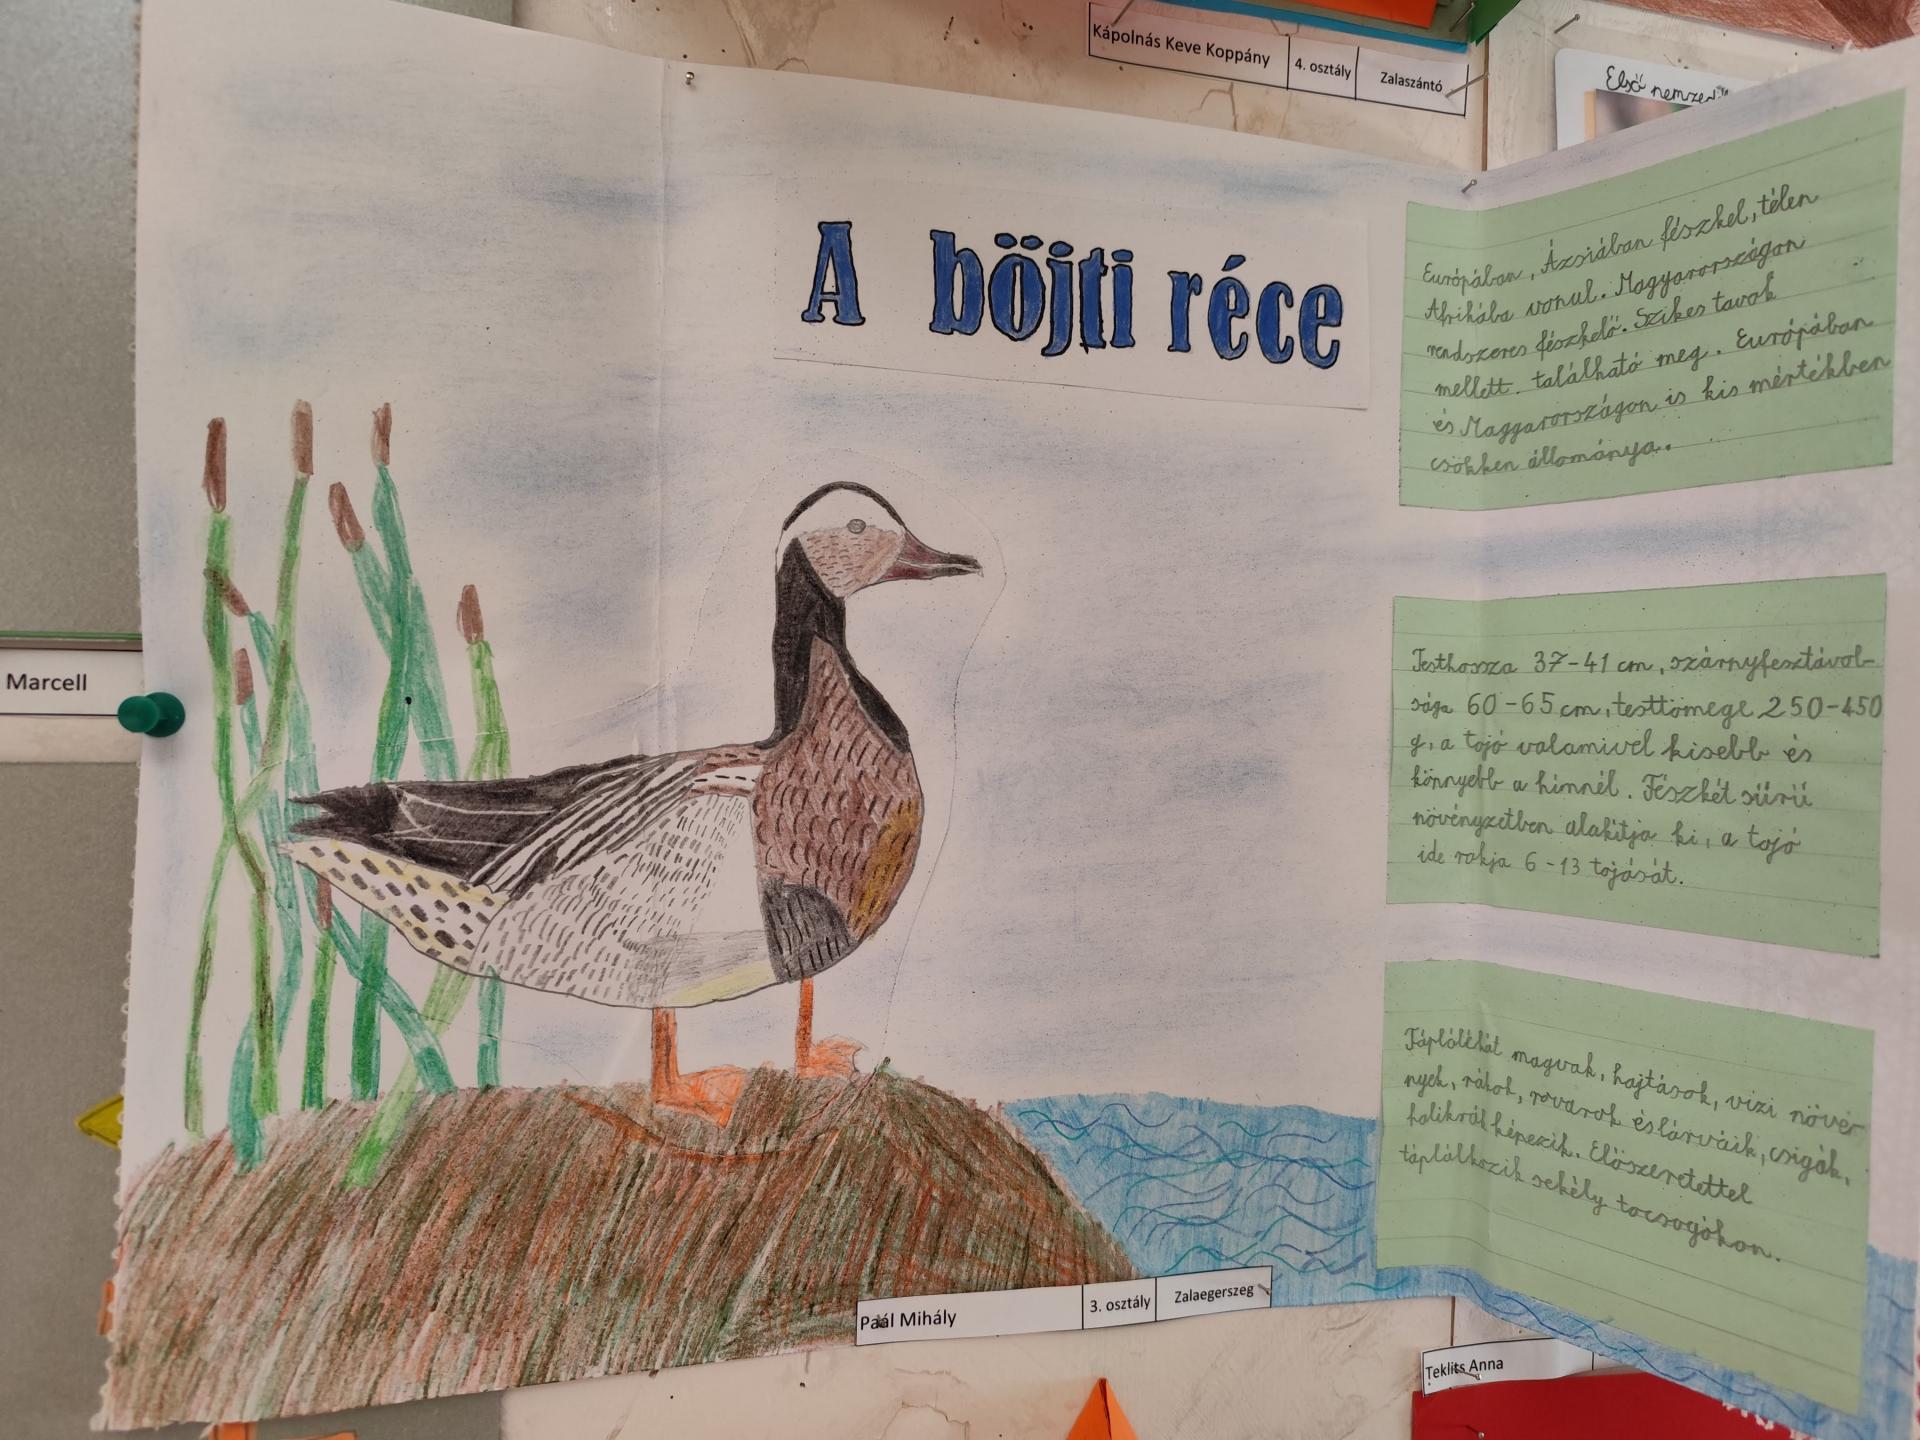 Kápolnás Keve Koppány 4. osztály Zalaszántó
Első nemzeti
A böjti réce
Európában, Ázsiában fészkel, télen
Afrikába vonul. Magyarországon
rendszeres fészkelő. Szikes tavak
mellett található meg. Európában
és Magyarországon is kis mértékben
csökken állománya.
Testhossza 37-41 cm, szárnyfesztávol-
sága 60-65 cm, testtömege 250-450
g, a tojó valamivel kisebb és
könnyebb a hímnél. Fészkét sűrű
növényzetben alakítja ki, a tojó
ide rakja 6-13 tojását.
Táplálékát magvak, hajtások, vizi növé-
nyek, rákok, rovarok és lárváik, csigák,
halikrák képezik. Előszeretettel
táplálkozik sekély tocsogókon.
Marcell
Paál Mihály 3. osztály Zalaegerszeg
Teklits Anna